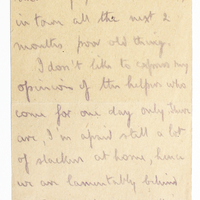 in town all the next 2
months, poor old thing.
I don't like to express my
opinion of the helpers who
come for one day only. There
are, I'm afraid still a lot
of slackers at home, hence
we are lamentably behind